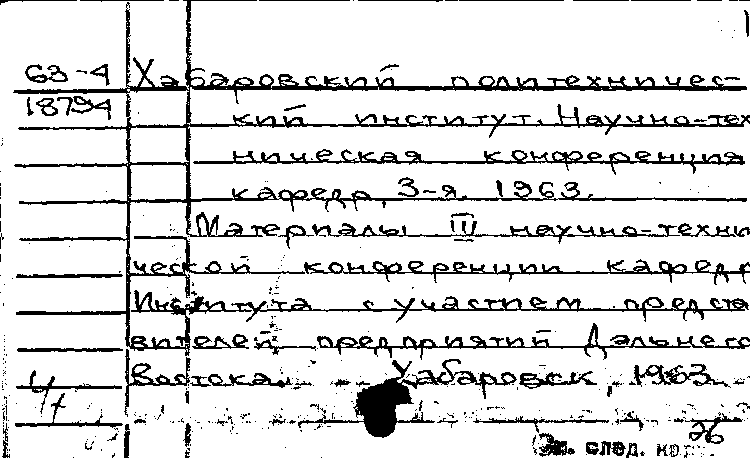 63-4 Хабаровский политехничес-
18794 кий институт. Научно-тех
ническая конференция
кафедр, 3-я. 1963.
Материалы III научно-техни
ческой конференции кафедр
Института с участием предста
вителей предприятий Дальнего
Востока. Хабаровск, 1963
26
след.